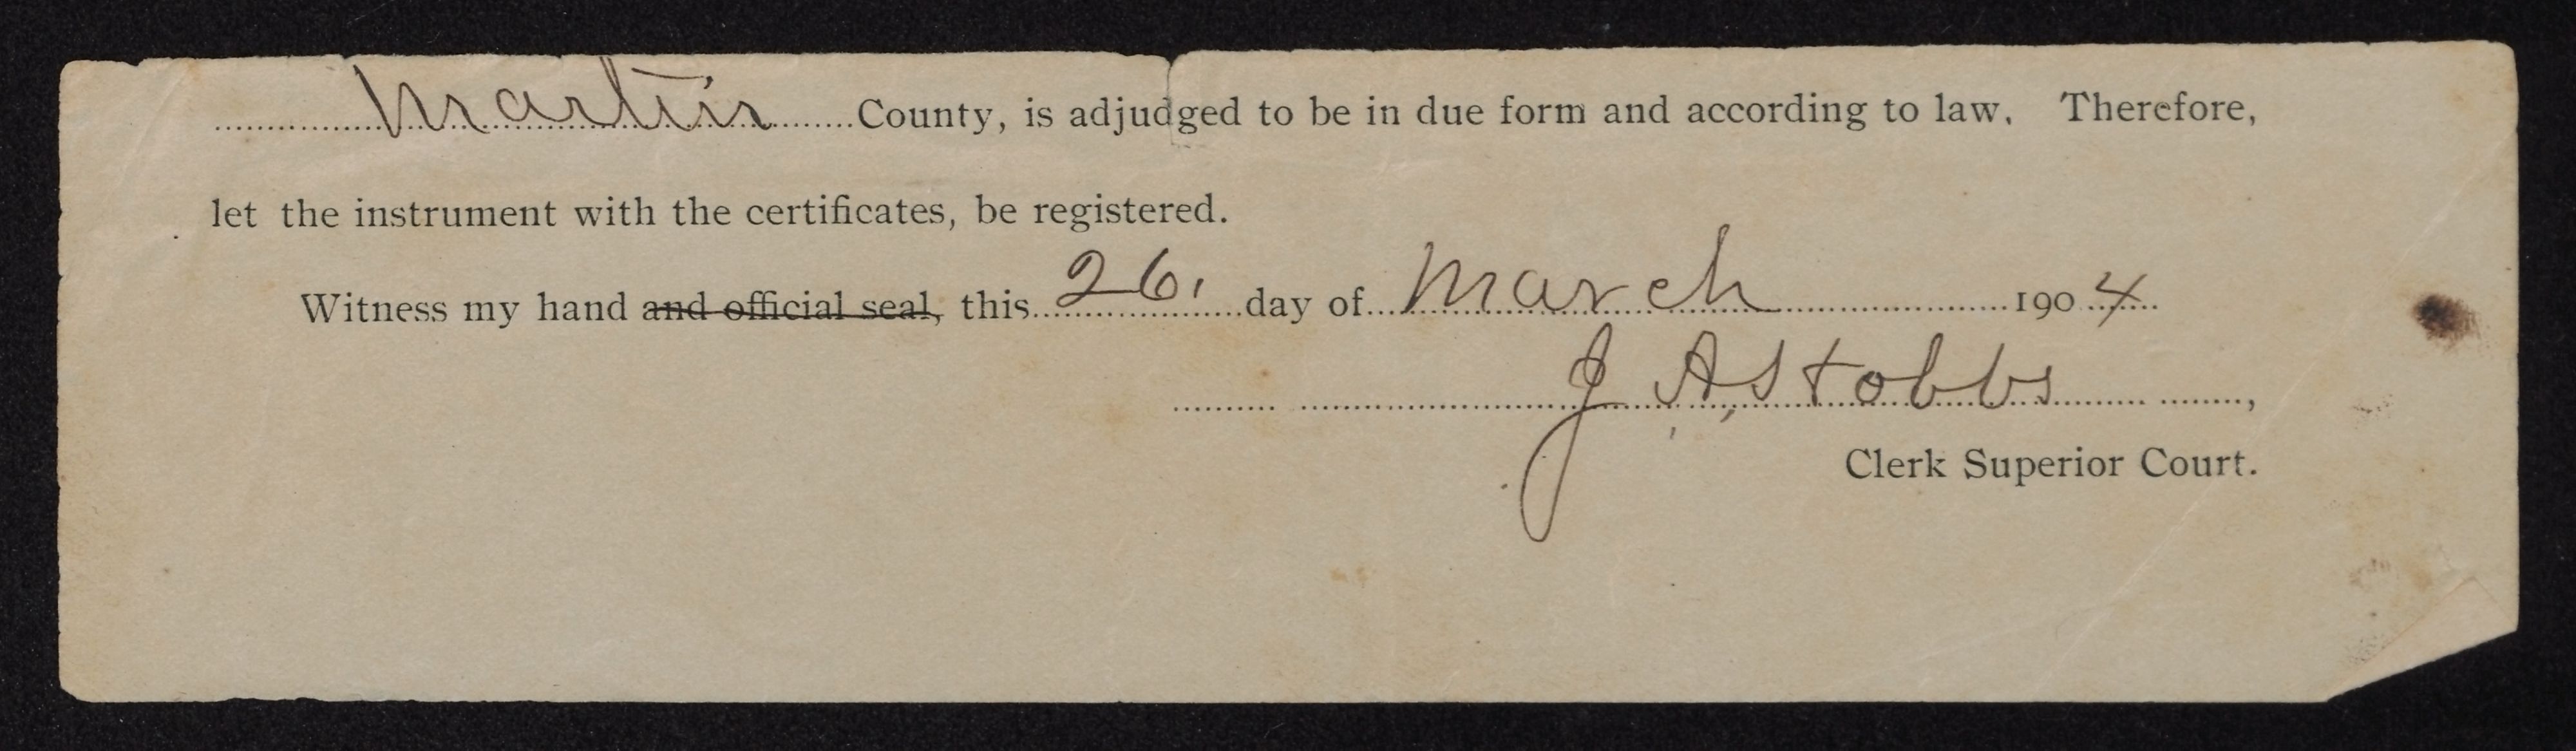 Martin County, is adjudged to be in due form and according to law. Therefore,
let the instrument with the certificates, be registered.
Witness my hand and official seal, this 26, day of March 1904
J A Stobbs,
Clerk Superior Court.